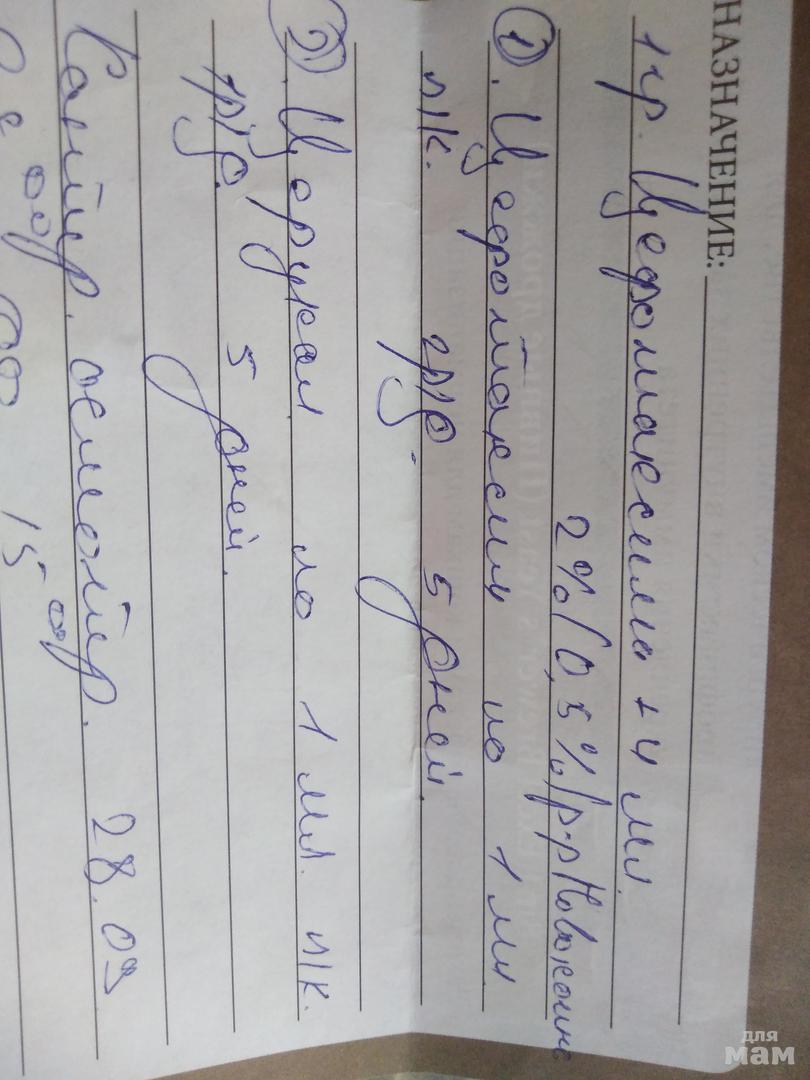 НАЗНАЧЕНИЕ:
1 гр. Цефотаксима + 4 мл.
2% (0,5%) р-р Новокаина
①. Цефотаксим по 1 мл
п/к. 2р/д. 5 дней.
②. Церукал по 1 мл. п/к.
1р/д. 5 дней.
осмотр. 28.09
до 15 00
для
мам